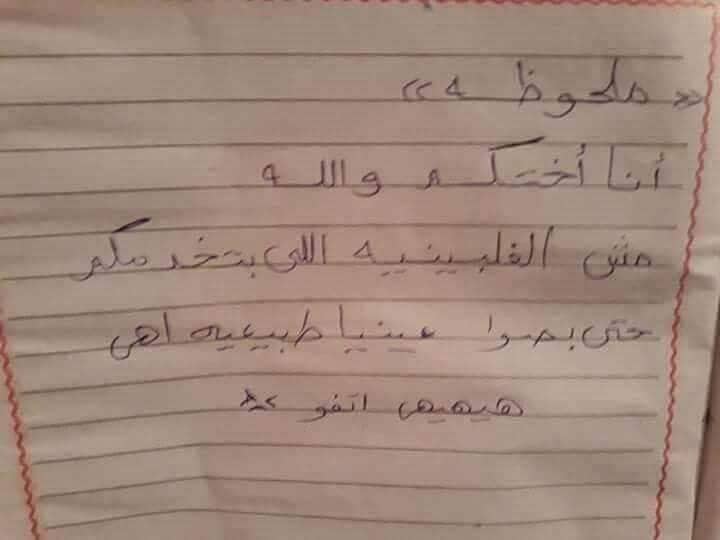 « ملحوظه »
أنا أختكم والله
مش الفلبينيه اللى بتخدمكم
حتى بصوا عينيا طبيعيه اهى
هيهيهى اتفو